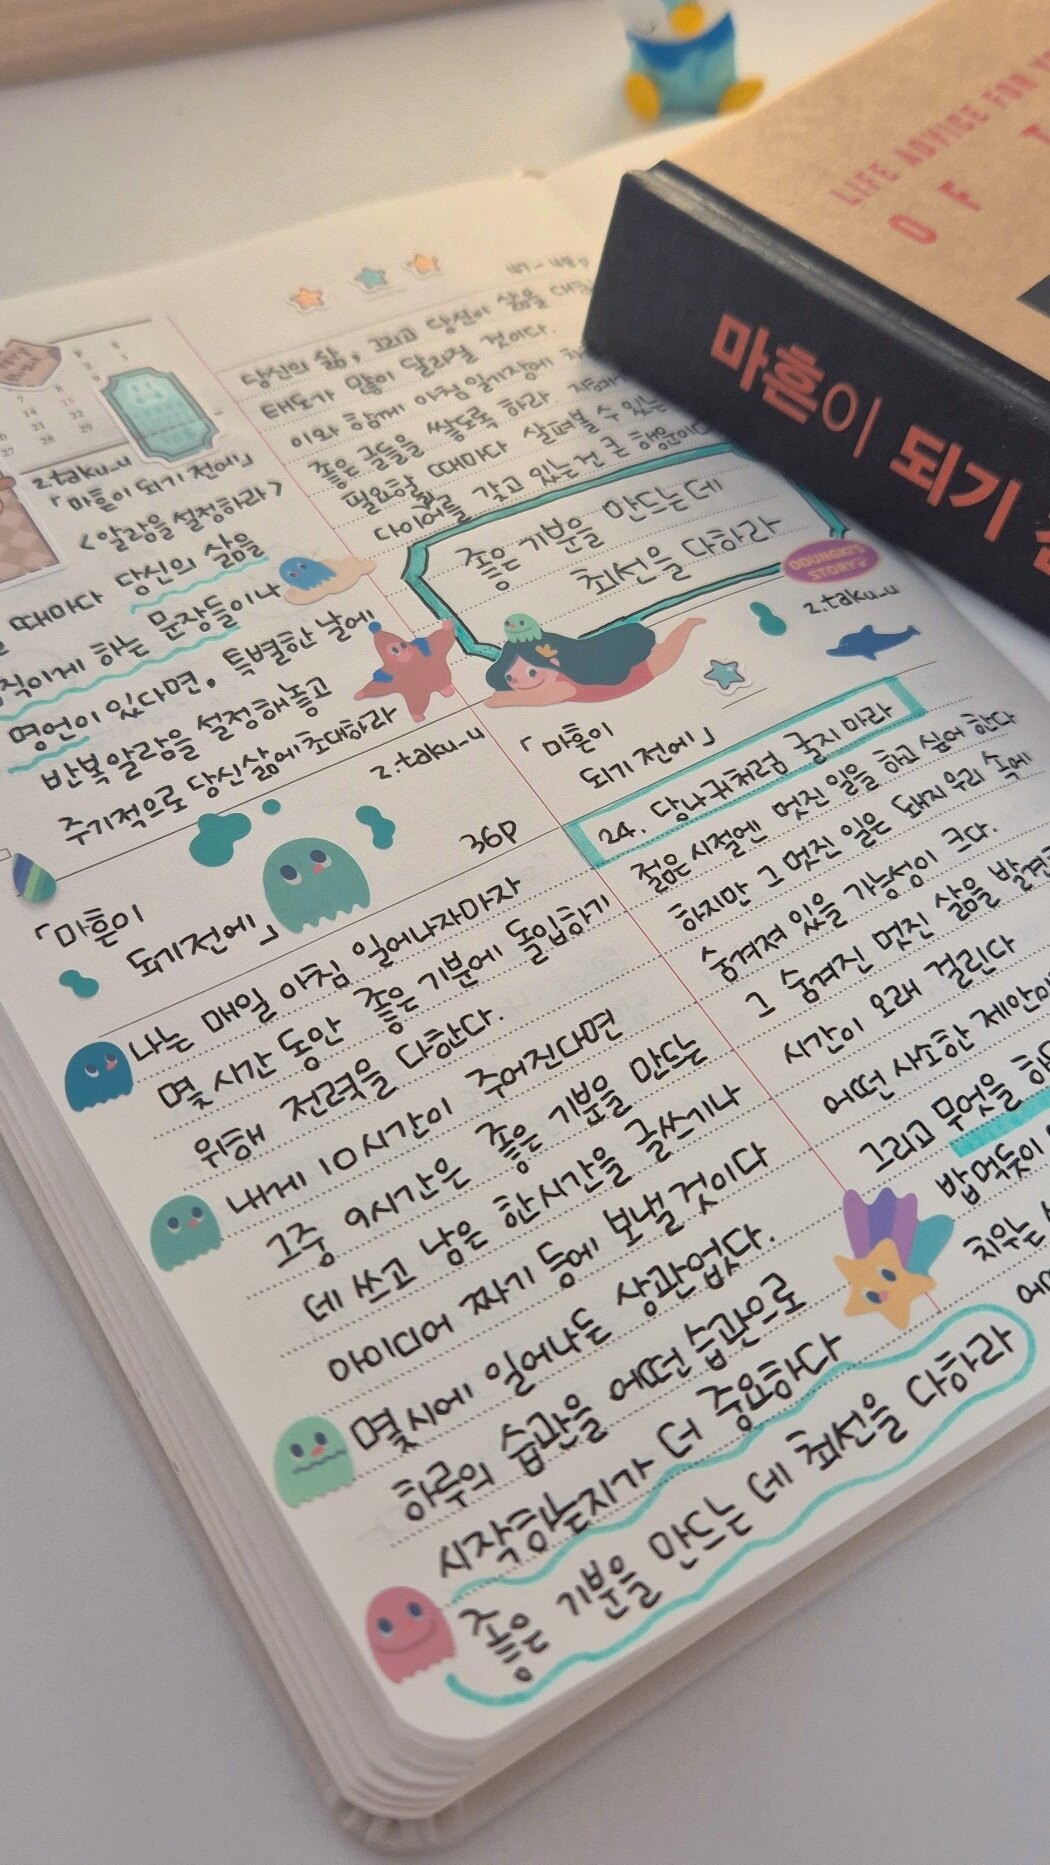 LIFE ADVICE FOR
OF
마흔이 되기
z.taku_u
「마흔이 되기 전에」
<알람을 설정하라>
때마다 당신의 삶을
직이게 하는 문장들이나
명언이 있다면, 특별한 날에
반복알람을 설정해놓고
주기적으로 당신삶에 초대하라
z.taku_u
36P
「마흔이
되기전에」
나는 매일 아침 일어나자마자
몇 시간 동안 좋은 기분에 돌입하기
위해 전력을 다한다.
내게 10시간이 주어진다면
그중 9시간은 좋은 기분을 만드는
데 쓰고 남은 한시간을 글쓰기나
아이디어 짜기 등에 보낼 것이다
몇시에 일어나든 상관없다.
하루의 습관을 어떤 습관으로
시작하는지가 더 중요하다
좋은 기분을 만드는 데 최선을 다하라
47-48p
당신의 삶, 그리고 당신이 삶을
태도가 많이 달라질 것이다.
이와 함께 아침 일기장에
좋은 글들을 쌓도록 하라
필요할 때마다 살펴볼 수 있는
다이어를 갖고 있는건 큰 행운이다
좋은 기분을 만드는데
최선을 다하라
DDUNGKI'S
STORY
z.taku_u
「마흔이
되기 전에」
24. 당나귀처럼 굴지 마라
젊은 시절엔 멋진 일을 하고 싶어 한다
하지만 그 멋진 일은 돼지우리 속에
숨겨져 있을 가능성이 크다.
그 숨겨진 멋진 삶을
시간이 오래 걸린다
어떤 사소한 제안이
그리고 무엇을
밥먹듯이
치우는